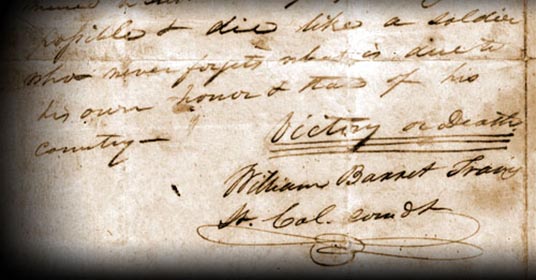 possible & die like a soldier
who never forgets what is due to
his own honor & that of his
country —
Victory or Death
William Barret Travis
Lt. Col. comdt